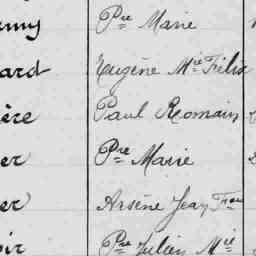 Pre Marie
ard Eugène Mie Félix
ère Paul Romain
er Pre Marie
er Arsène Jean Fran
oir Pre Julien Mie